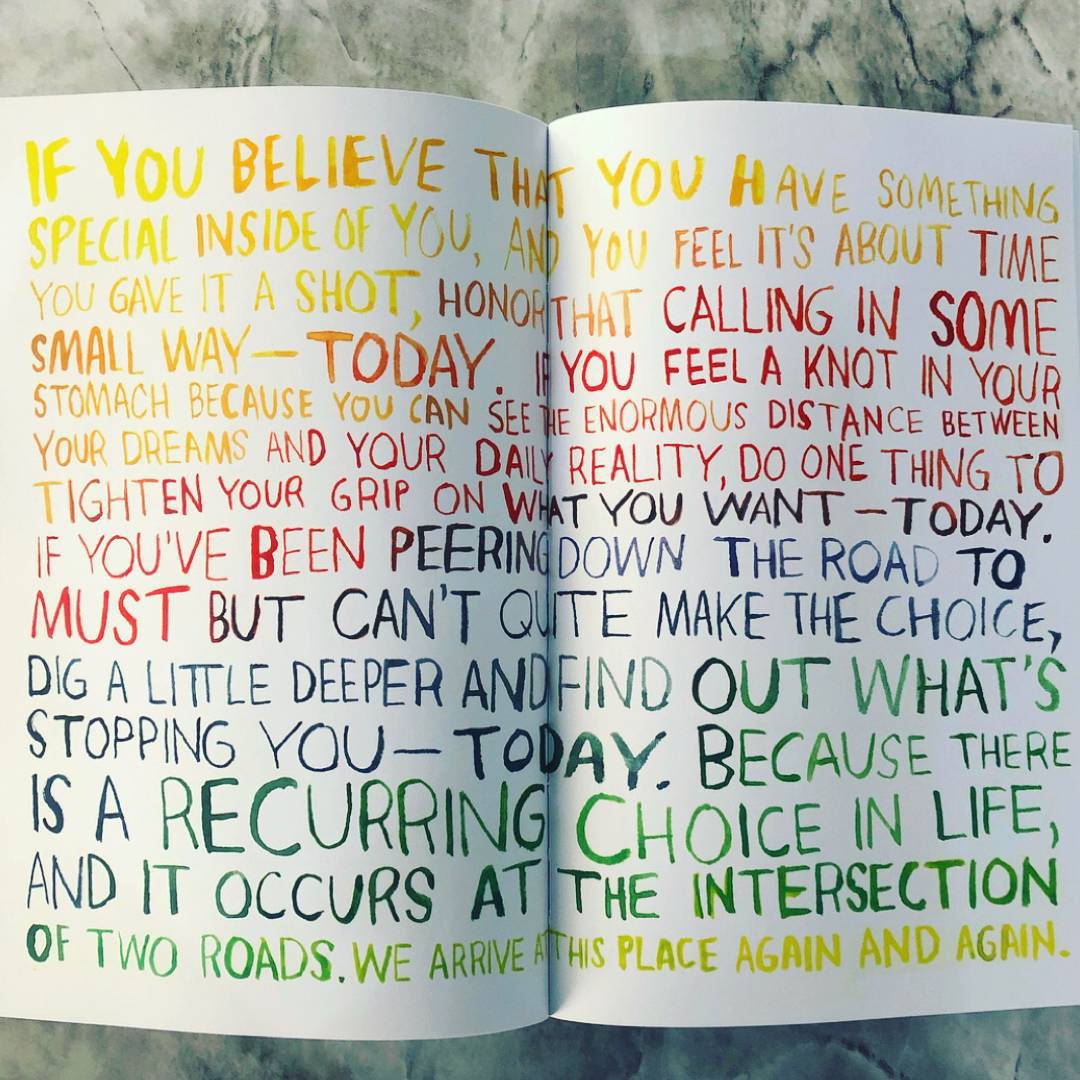 IF YOU BELIEVE THAT YOU HAVE SOMETHING
SPECIAL INSIDE OF YOU, AND YOU FEEL IT'S ABOUT TIME
YOU GAVE IT A SHOT, HONOR THAT CALLING IN SOME
SMALL WAY — TODAY. IF YOU FEEL A KNOT IN YOUR
STOMACH BECAUSE YOU CAN SEE THE ENORMOUS DISTANCE BETWEEN
YOUR DREAMS AND YOUR DAILY REALITY, DO ONE THING TO
TIGHTEN YOUR GRIP ON WHAT YOU WANT — TODAY.
IF YOU'VE BEEN PEERING DOWN THE ROAD TO
MUST BUT CAN'T QUITE MAKE THE CHOICE,
DIG A LITTLE DEEPER AND FIND OUT WHAT'S
STOPPING YOU — TODAY. BECAUSE THERE
IS A RECURRING CHOICE IN LIFE,
AND IT OCCURS AT THE INTERSECTION
OF TWO ROADS. WE ARRIVE AT THIS PLACE AGAIN AND AGAIN.